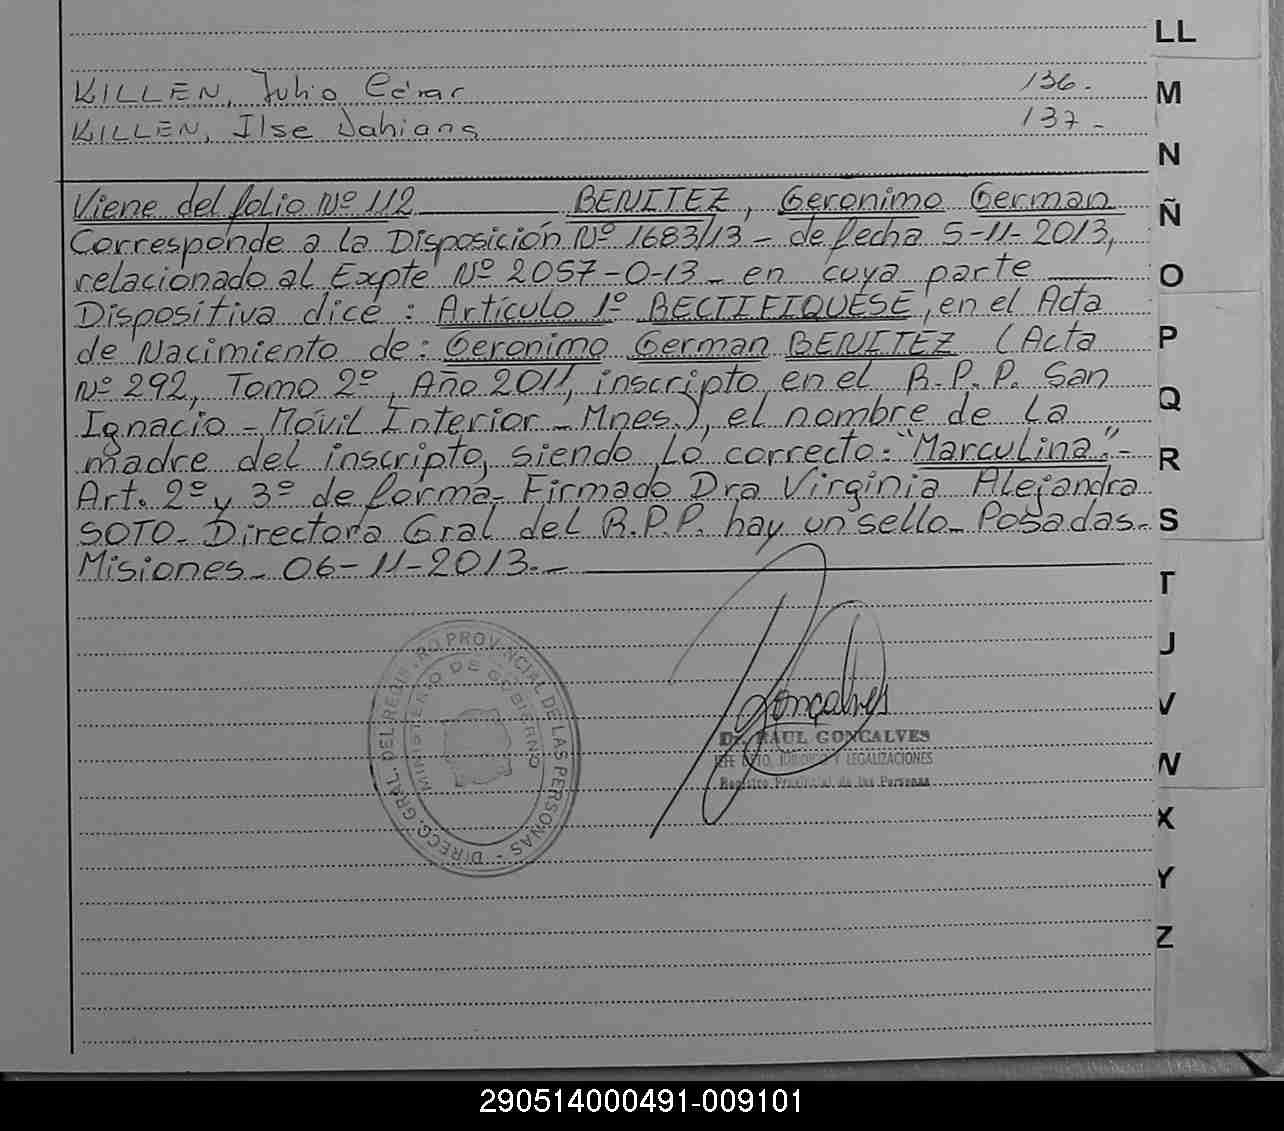 LL
KILLEN, Julio César 136.
M
KILLEN, Ilse Dahiana 137-
N
Viene del folio Nº 112 BENITEZ, Geronimo German
Ñ
Corresponde a la Disposición Nº 1683/13 - de fecha 5-11-2013,
relacionado al Expte Nº 2057-0-13 - en cuya parte
O
Dispositiva dice: Artículo 1º RECTIFIQUESE, en el Acta
de Nacimiento de: Geronimo German BENITEZ (Acta
P
Nº 292, Tomo 2º, Año 2011, inscripto en el R.P.P. San
Q
Ignacio - Móvil Interior - Mnes.), el nombre de la
madre del inscripto, siendo lo correcto: "Marculina".-
R
Art. 2º y 3º de forma - Firmado Dra Virginia Alejandra
SOTO - Directora Gral del R.P.P. hay un sello - Posadas -
S
Misiones - 06-11-2013. -
T
U
V
W
X
Y
Z
DIRECC. GRAL. DEL REGISTRO PROVINCIAL DE LAS PERSONAS -
MINISTERIO DE GOBIERNO
Gonçalves
Dr. RAUL GONCALVES
JEFE DTO. JURIDICO Y LEGALIZACIONES
Registro Provincial de las Personas
290514000491-009101